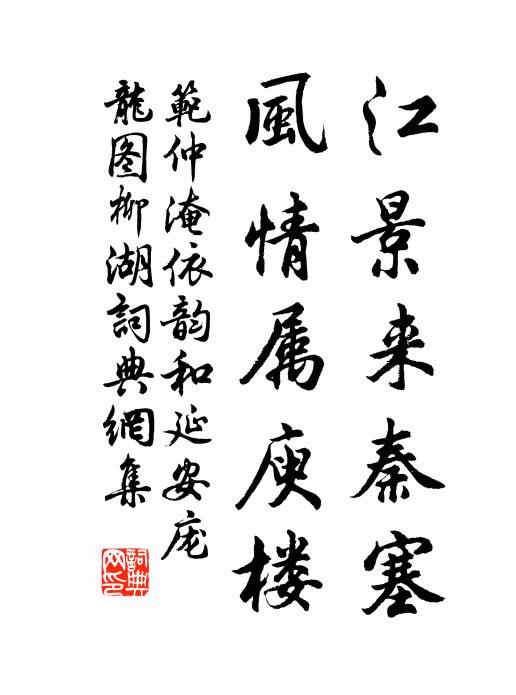 江景来秦塞
風情属庾楼
範仲淹依韵和延安庞
龍图柳湖詞典網集
詞典网印